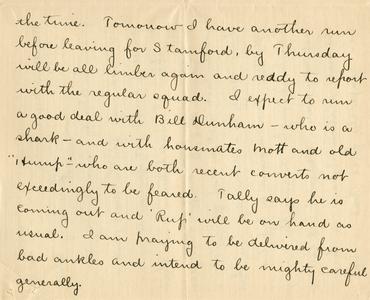 the time. Tomorrow I have another run
before leaving for Stamford, by Thursday
will be all limber again and ready to report
with the regular squad. I expect to run
a good deal with Bill Dunham - who is a
shark - and with housmates Mott and old
"Hump" - who are both recent converts not
exceedingly to be feared. Tally says he is
coming out and 'Ruf' will be on hand as
usual. I am praying to be delivered from
bad ankles and intend to be mighty careful
generally.